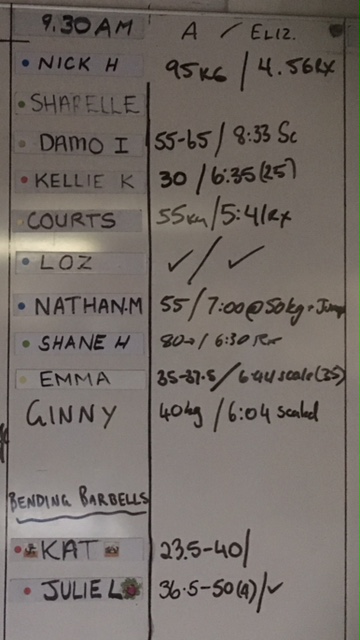 9.30 AM A / ELIZ.
NICK H 95KG / 4.56RX
SHARELLE
DAMO I 55-65 / 8:33 Sc
KELLIE K 30 / 6:35 (25)
COURTS 55kg / 5:41RX
LOZ ✓ / ✓
NATHAN.M 55 / 7:00 @ 50kg + Jump
SHANE H 80 / 6:30 Rx
EMMA 35-37.5 / 6:44 scale (35)
GINNY 40kg / 6:04 scaled
BENDING BARBELLS
KAT 23.5-40 /
JULIE L 36.5-50 (4) / ✓